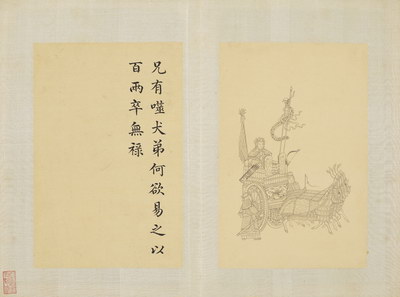 兄有噬犬弟何欲易之以
百兩卒無祿